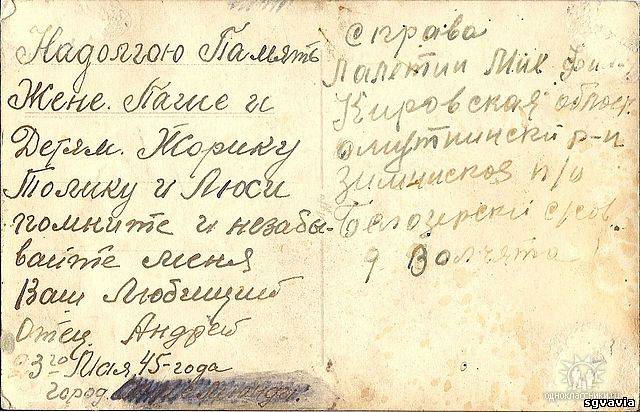 Надолгою Память
Жене. Пагие и
Детям. Жорику
Толику и Люси
помните и незабы-
вайте меня
Ваш Любищий
Отец. Андрей
3го Мая 45-года
город.
справа
Лалетин Мих
Кировская област
омутнински р-н
п/о
Белозерски с/сов
д. Волчата
одноклассники
sgvavia